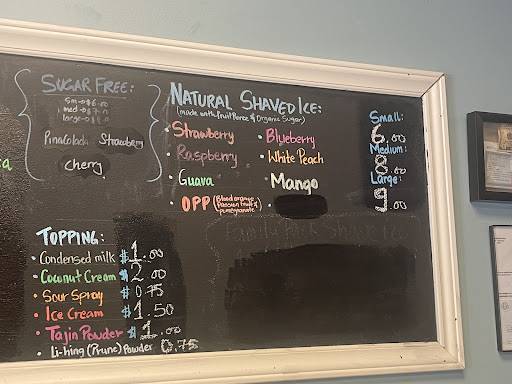 SUGAR FREE:
sm-$6.00
Pinacolada Strawberry
Cherry
NATURAL SHAVED ICE:
(made with fruit Puree & Organic Sugar)
• Strawberry
• Raspberry
• Guava
• OPP (Blood orange
Passion fruit &
pomegranate
• Blueberry
• White Peach
• Mango
Small:
6.00
Medium:
8.00
Large:
9.00
TOPPING:
• Condensed milk $1.00
• Coconut Cream $2.00
• Sour Spray $0.75
• Ice Cream $1.50
• Tajin Powder $1.00
• Li-hing (Prune) Powder 0.75